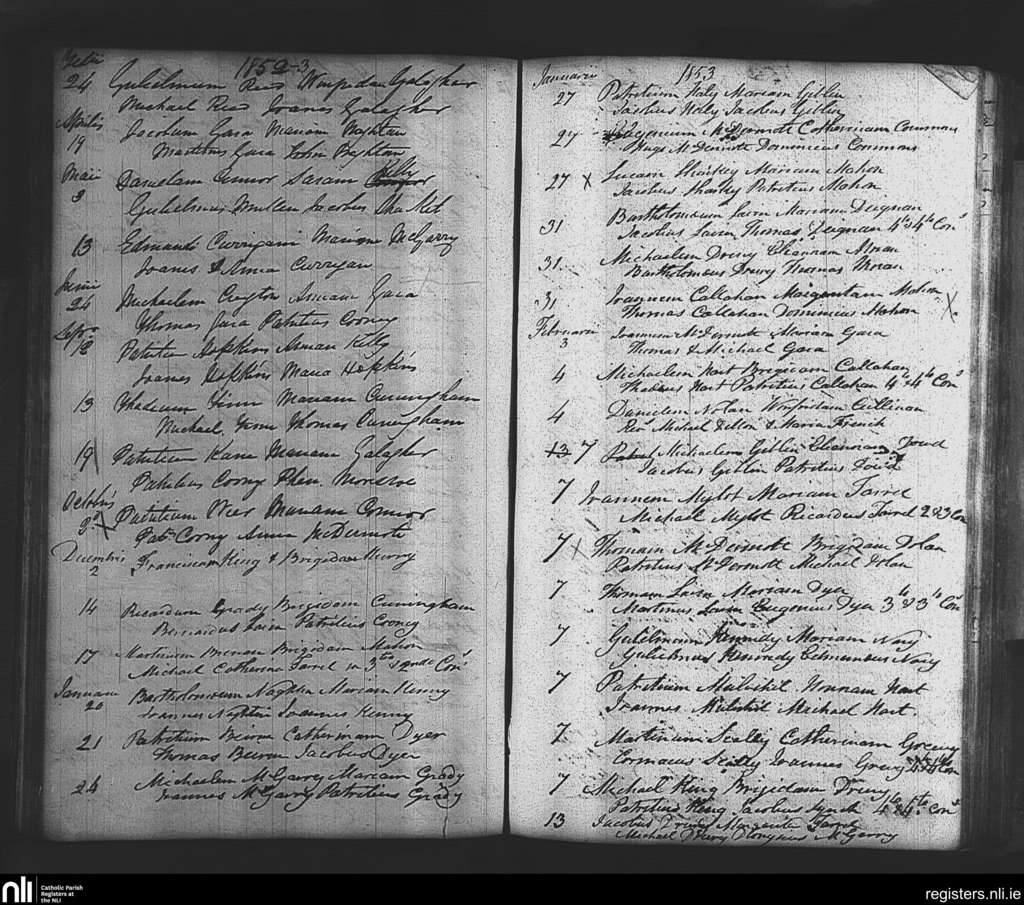 1852-3
24 Gulielmum Winifridam Galagher
Michael Joanes Galagher
Aprilis
19 Jacobum Gara Mariam Naghtan
Martinus Gara John Naghtan
Maii
3 Danielam Connor Saram Kelly
Gulielmus Mullen Jacobus
13 Edmund Currigan Mariam McGarry
Joanes & Anna Currigan
Junii
24 Michaelem Creghton Annam Gara
Thomas Gara Patritius Cooney
12 Patritium Hopkins Annam Kelly
Joanes Hopkins Maria Hopkins
13 Thadeum Finn Mariam Cuningham
Michael Finn Thomas Cuningham
19 Patritium Kane Mariam Galagher
Patritius Coony
Octobris
3 X Patritium Mariam Connor
Patt Coony Anna McDermott
Decembris
2 Franciscum King & Brigidam
14 Ricardum Grady Brigidam Cuningham
Bernardus Patritius Cooney
17 Martinum Brenan Brigidam Mahon
Michael Catherine Farrel in 3tio
Januarii
20 Bartholomeum Naghten Mariam Kenny
Joannes Naghten Joannes Kenny
21 Patritium Beirne Catherinam Dyer
Thomas Beirne Jacobus Dyer
24 Michaelem McGarry Mariam Grady
Joannes McGarry Patritius Grady
Januarii 1853
27 Patritium Haly Mariam Giblin
Jacobus Haly Jacobus Giblin
27 Eugenium McDermott Catherinam Commons
Hugo McDermott Dominicus Commons
27 X Lucam Sharkey Mariam Mahon
Jacobus Sharkey Patritius Mahon
31 Bartholomeum Mariam Deignan
Jacobus Thomas Deignan 4to & 4to Cons
31 Michaelem Drury Elianoram Moran
Bartholomeus Drury Thomas Moran
31 Joannem Callahan Margaritam Mahon X
Thomas Callahan Dominicus Mahon
Februarii
3 Joannem McDermott Mariam Gara
Thomas & Michael Gara
4 Michaelem Hart Brigidam Callahan
Thadeus Hart Patritius Callahan 4to & 4to Cons
4 Danielem Nolan Winifridam Cullinan
Revd Michael Dillon & Maria French
13 7 Michaelem Giblin Elianoram Dowd
Jacobus Giblin Patritius Dowd
7 Joannem Mylot Mariam Farrel
Michael Mylot Ricardus Farrel 2 & 3 Con
7 X Thomam McDermott Brigidam Dolan
Patritius McDermott Michael Dolan
7 Thomam Mariam Dyer
Martinus Eugenius Dyer 3 & 3 Cons
7 Gulielmum Kennedy Mariam Nary
Gulielmus Kennedy Edmundus Nary
7 Patritium Honnam Hart
Joannes Michael Hart
7 Martinum Scally Catherinam Greevy
Cormacus Scally Joannes Greevy 4 & 4to Con
7 Michael King Brigidam Drury
Patritius King Jacobus Lynch 4to & 4to Cons
13 Jacobus Drury
Michael Drury McGarry
nli Catholic Parish
Registers at
the NLI
registers.nli.ie